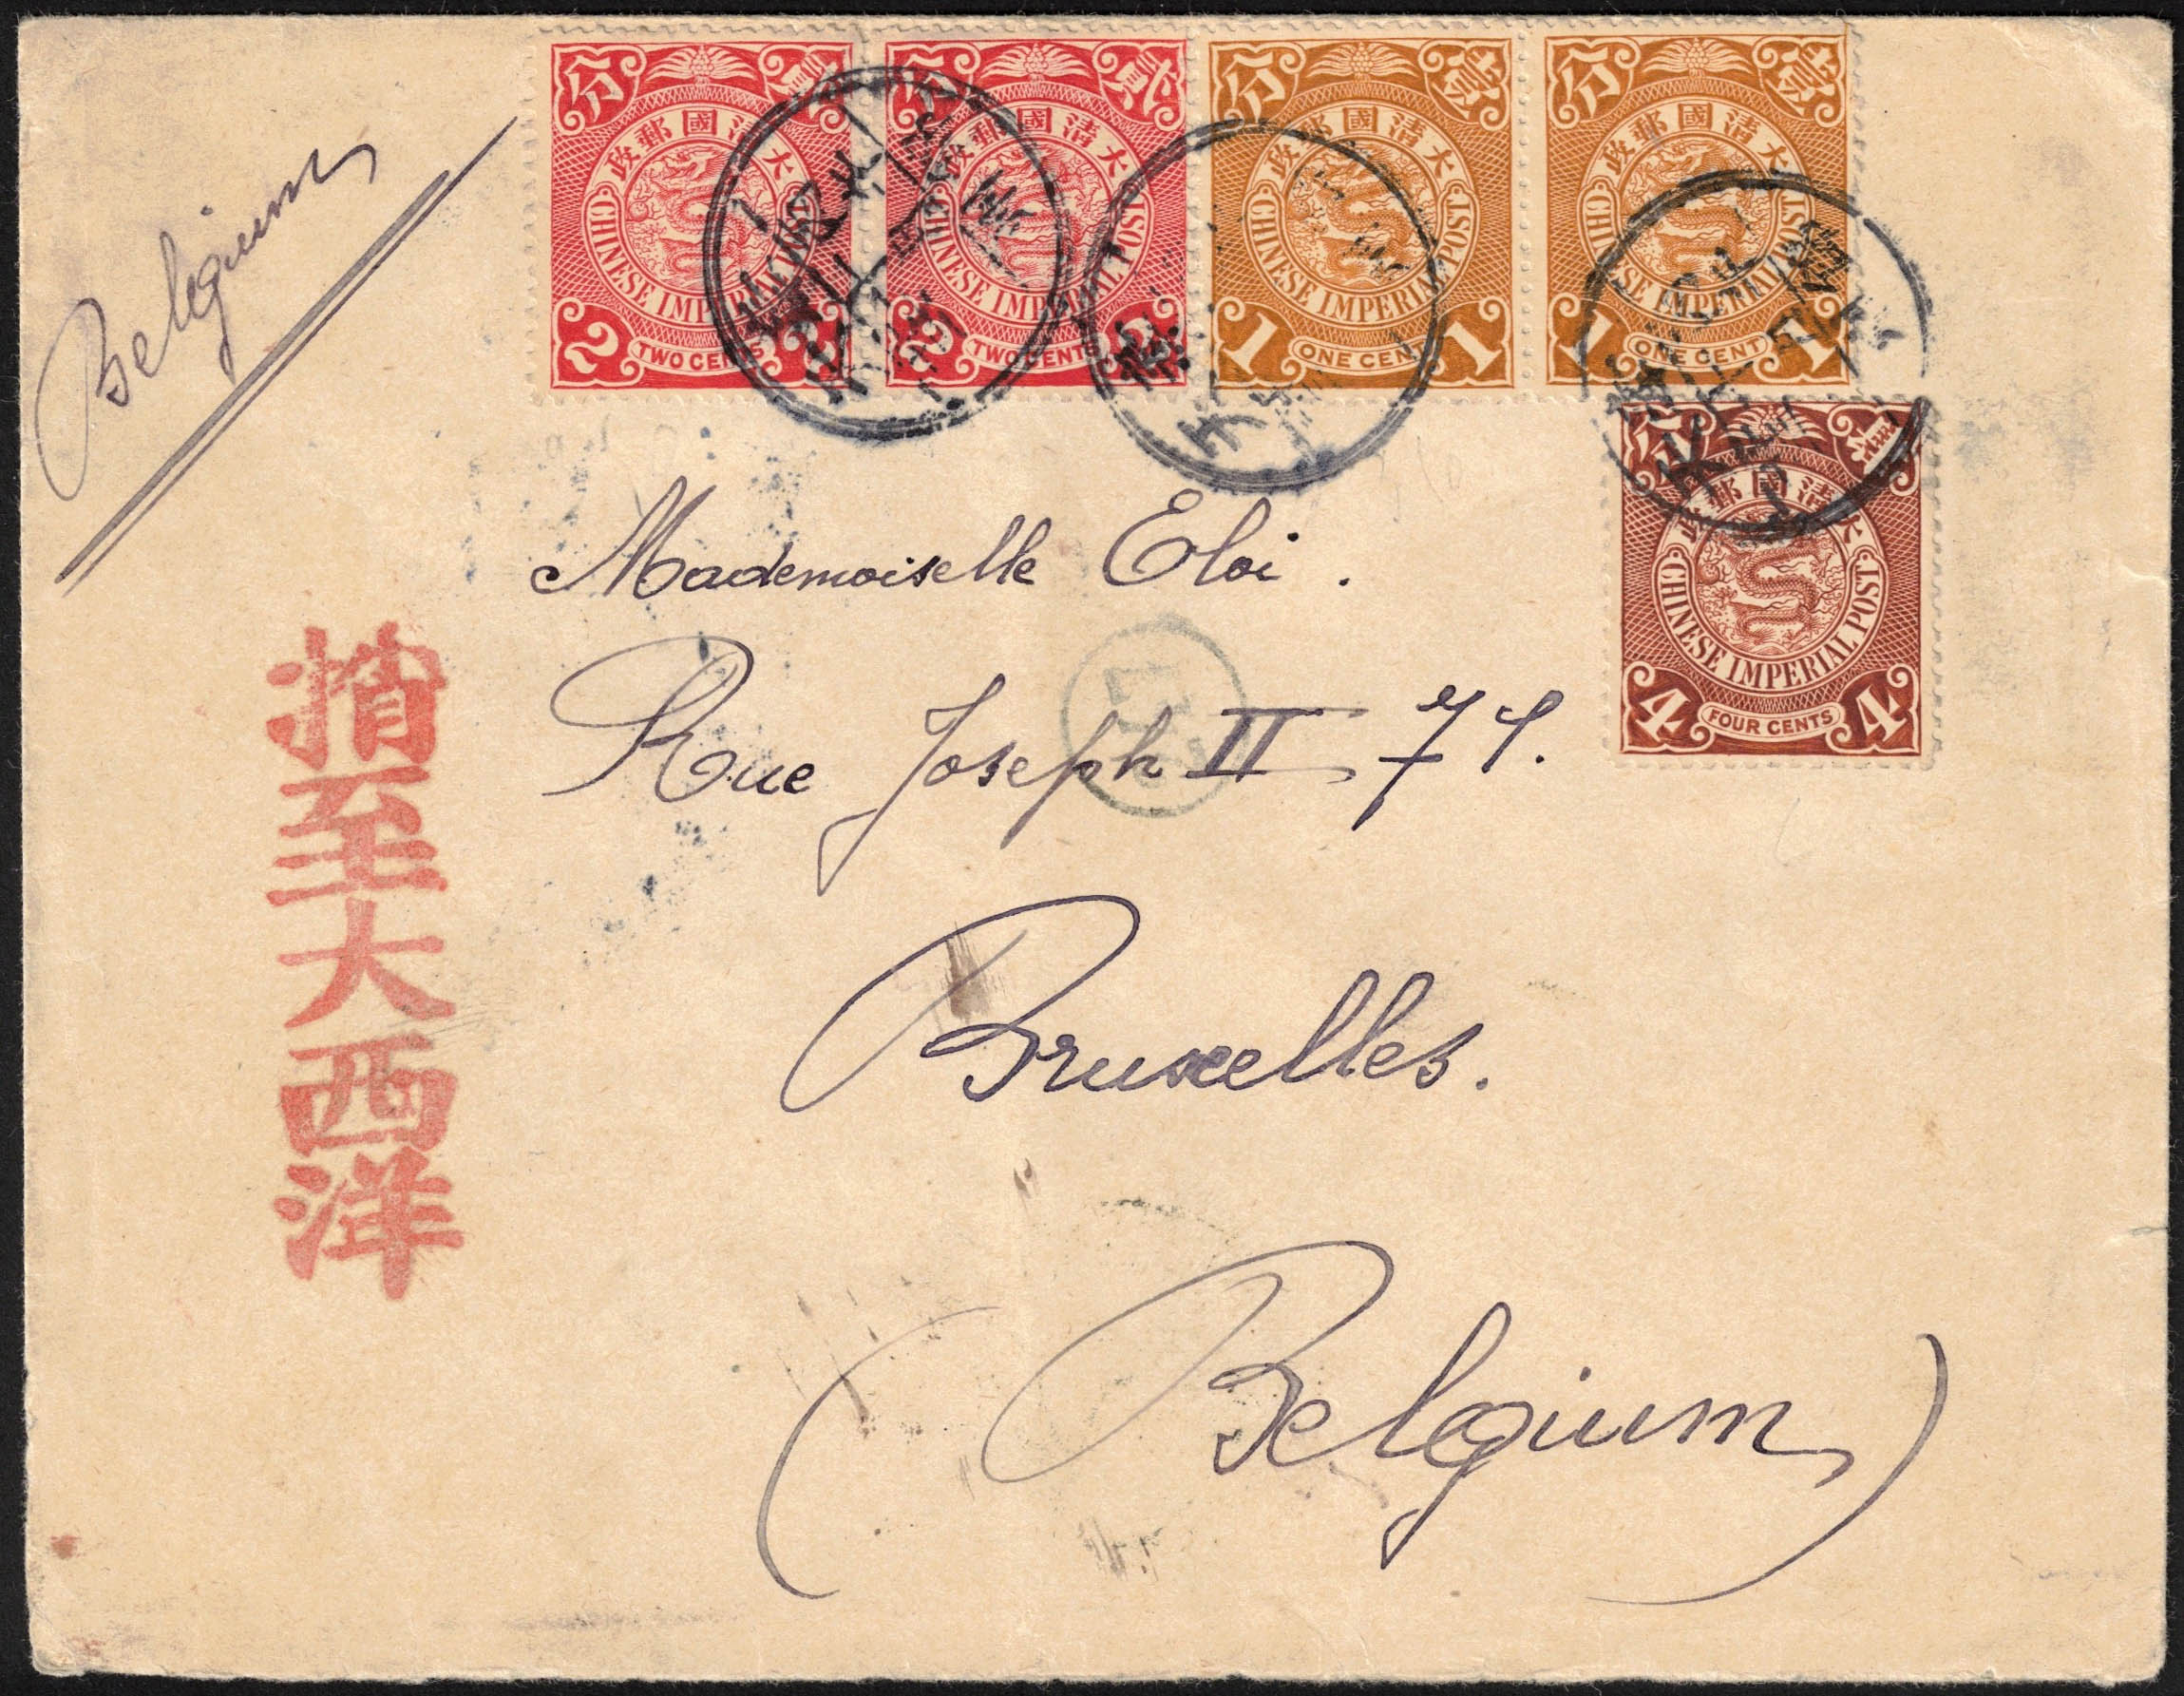 Belgium
分 貳
大清國郵政
CHINESE IMPERIAL POST
2 TWO CENTS 2
分 貳
大清國郵政
CHINESE IMPERIAL POST
2 TWO CENTS 2
分 壹
大清國郵政
CHINESE IMPERIAL POST
1 ONE CENT 1
分 壹
大清國郵政
CHINESE IMPERIAL POST
1 ONE CENT 1
大清國郵政
CHINESE IMPERIAL POST
4 FOUR CENTS 4
Mademoiselle Eloi.
Rue Joseph II
Bruxelles.
(Belgium)
捎至大西洋